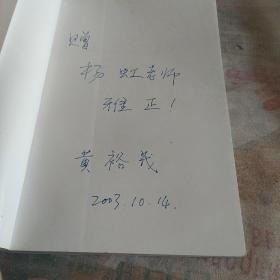 赠
杨虹老师
雅正！
黄裕茂
2003.10.14.